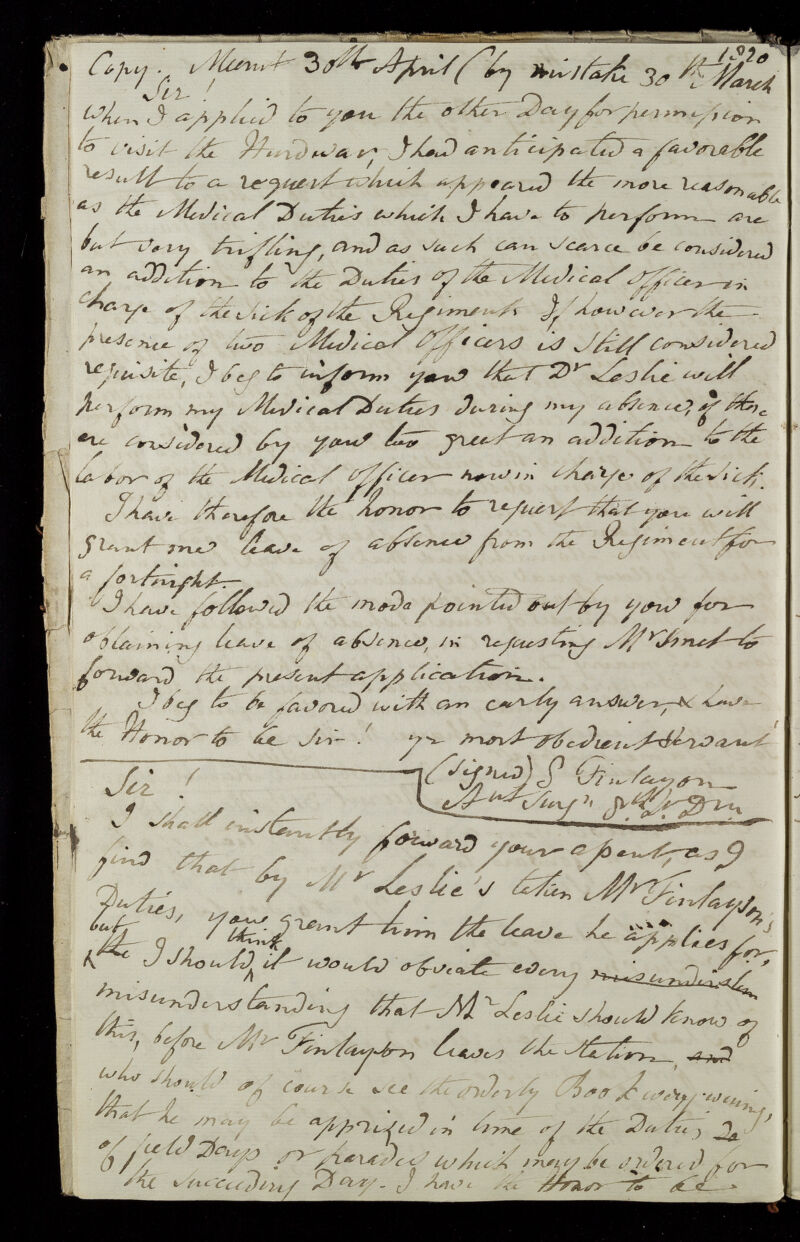 1820
Copy. Meerut 30th April (by mistake 30th March
Sir!
When I applied to you the other Day for permission
to visit the Hurdwar, I had anticipated a favorable
result to a request which appeared the more reasonable
as the Medical Duties which I have to perform are
but very trifling, and as such can scarce be considered
an addition to the Duties of the Medical Officer in
charge of the sick of the Regiment. If however the
presence of two Medical Officers is still considered
requisite, I beg to inform you that Dr Leslie will
perform my Medical Duties during my absence, if these
are considered by you too great an addition to the
labor of the Medical Officer now in charge of the sick.
I have therefore the honor to request that you will
grant me leave of absence from the Regiment for
a fortnight.
I have followed the mode pointed out by you for
obtaining leave of absence, in requesting Mr Smet to
forward the present application.
I beg to be favored with an early answer, & have
the Honor to be Sir! yr most obedient Servant
(Signed) G Finlayson
Asst Surgn 8th Lt Dn
Sir!
I shall instantly forward your as I
find that by Mr Leslie's taken Mr Finlayson's
Duties, you grant him the leave he applies for,
but the I should think it would obviate every misunderstan
misunderstanding that Mr Leslie should know of
this, before Mr Finlayson leaves the station, and
who should of course see the orderly Book every evening,
that he may be apprized in time of the Duties
of field Days or parades which may be ordered for
the succeeding Day. I have the Honor to be